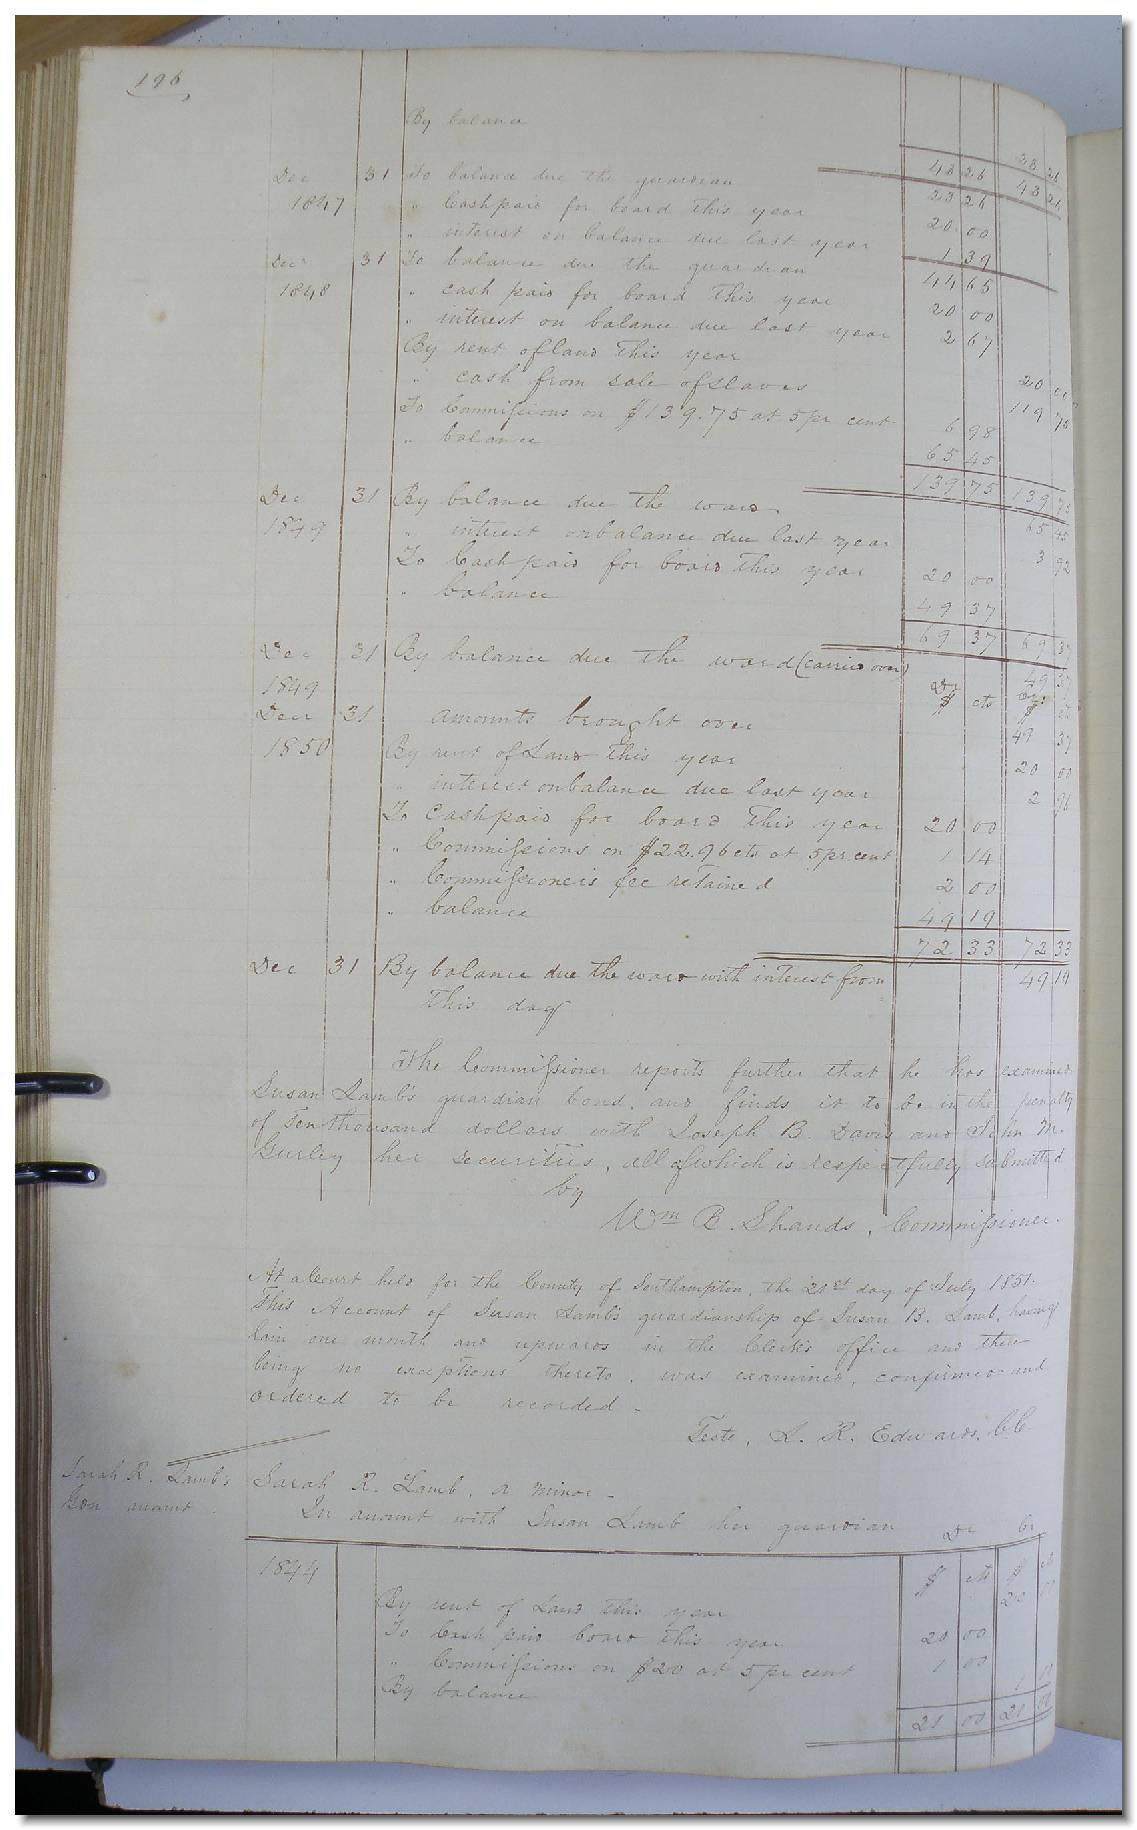 196
By balance 23 26
43 26 43 26
Dec 31 To balance due the guardian 23 26
1847 " Cash paid for board this year 20 00
" interest on balance due last year 1 39
Decr 31 To balance due the guardian 44 65
1848 " cash paid for board this year 20 00
" interest on balance due last year 2 67
By rent of land this year 20 00
" cash from sale of slaves 119 75
To Commissions on $139.75 at 5 pr cent 6 98
" balance 65 45
139 75 139 75
Dec 31 By balance due the ward 65 45
1849 " interest on balance due last year 3 92
To Cash paid for board this year 20 00
" balance 49 37
69 37 69 37
Dec 31 By balance due the ward (carried over) 49 37
1849 Dr Cr
$ cts $ cts
Decr 31 amounts brought over 49 37
1850 By rent of Land this year 20 00
" interest on balance due last year 2 96
To cash paid for board this year 20 00
" Commissions on $22.96 cts at 5 pr cent 1 14
" Commissioners fee retained 2 00
" balance 49 19
72 33 72 33
Dec 31 By balance due the ward with interest from 49 19
this day
The Commissioner reports further that he has examined
Susan Lamb's guardian bond, and finds it to be in the penalty
of Ten thousand dollars with Joseph B. Davis and John M.
Gurley her securities, all of which is respectfully submitted
by
Wm B. Shands, Commissioner.
At a Court held for the County of Southampton, the 21st day of July 1851.
This Account of Susan Lamb's guardianship of Susan B. Lamb, having
lain one month and upwards in the Clerk's office and there
being no exceptions thereto, was examined, confirmed and
ordered to be recorded -
Teste, L. R. Edwards, CC.
Sarah R. Lamb's
Gdn account
Sarah R. Lamb, a minor -
In account with Susan Lamb her guardian Dr Cr
1844 $ cts $ cts
By rent of Land this year 20 00
To Cash paid board this year 20 00
" Commissions on $20 at 5 pr cent 1 00
By balance 1 00
21 00 21 00